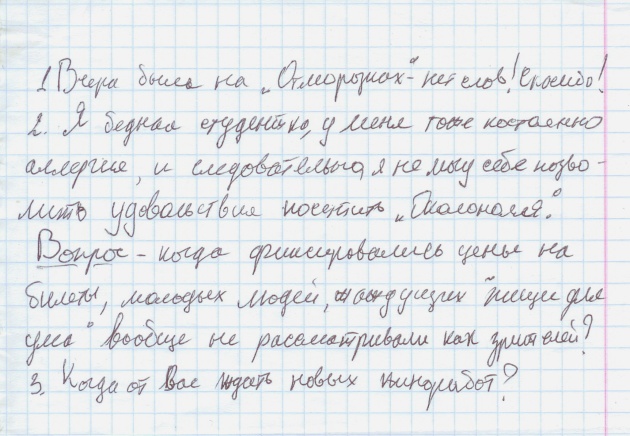 1. Вчера была на „Отморозках" - нет слов! Спасибо!
2. Я бедная студентка, у меня тоже постоянно
аллергия, и следовательно, я не могу себе позво-
лить удовольствия посетить „Околоноля".
Вопрос - когда фиксировались цены на
билеты, молодых людей, жаждущих "пищи для
ума" вообще не рассматривали как зрителей?
3. Когда от Вас ждать новых киноработ?